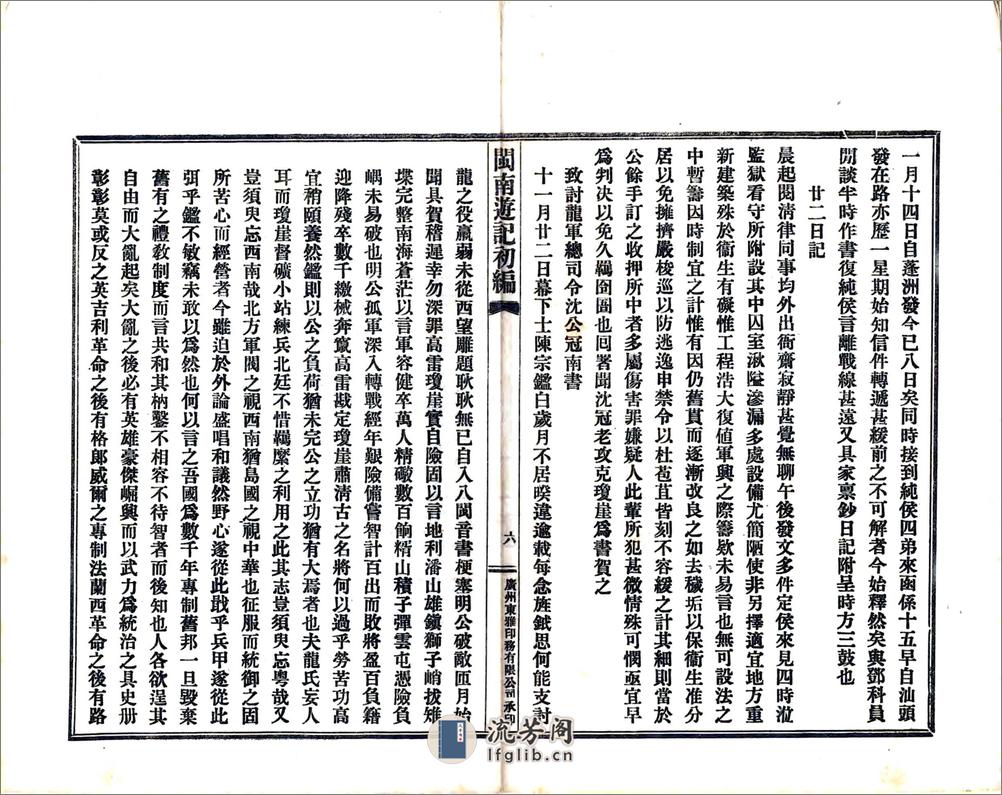 一月十四日自蓬洲發今已八日矣同時接到純侯四弟來函係十五早自汕頭
發在路亦歷一星期始知信件轉遞甚緩前之不可解者今始釋然矣與鄧科員
閒談半時作書復純侯言離戰線甚遠又具家禀鈔日記附呈時方三鼓也
廿二日記
晨起閱淸律同事均外出衙齋寂靜甚覺無聊午後發文多件定侯來見四時涖
監獄看守所附設其中囚室湫隘滲漏多處設備尤簡陋使非另擇適宜地方重
新建築殊於衞生有礙惟工程浩大復値軍興之際籌欵未易言也無可設法之
中暫籌因時制宜之計惟有因仍舊貫而逐漸改良之如去穢垢以保衞生准分
居以免擁擠嚴梭巡以防逃逸申禁令以杜苞苴皆刻不容緩之計其細則當於
公餘手訂之收押所中者多屬傷害罪嫌疑人此輩所犯甚微情殊可憫亟宜早
爲判决以免久羈囹圄也回署聞沈冠老攻克瓊崖爲書賀之
致討龍軍總司令沈公冠南書
十一月廿二日幕下士陳宗鑑白歲月不居暌違逾載每念旌鉞思何能支討
閩南遊記初編
六
廣州東雅印務有限公司承印
龍之役羸弱未從西望雕題耿耿無已自入八閩音書梗塞明公破敵匝月始
聞具賀稽遲幸勿深罪高雷瓊崖實自險固以言地利潘山雄鎭獅子峭拔雉
堞完整南海蒼茫以言軍容健卒萬人精礮數百餉精山積子彈雲屯憑險負
嵎未易破也明公孤軍深入轉戰經年艱險備嘗智計百出而敗將盈百負籍
迎降殘卒數千繳械奔竄高雷戡定瓊崖肅淸古之名將何以過乎勞苦功高
宜稍頤養然鑑則以公之負荷猶未完公之立功猶有大焉者也夫龍氏妄人
耳而瓊崖督礦小站練兵北廷不惜羈縻之利用之此其志豈須臾忘粤哉又
豈須臾忘西南哉北方軍閥之視西南猶島國之視中華也征服而統御之固
所苦心而經營者今雖迫於外論盛唱和議然野心遂從此戢乎兵甲遂從此
弭乎鑑不敏竊未敢以爲然也何以言之吾國爲數千年專制舊邦一旦毀棄
舊有之禮敎制度而言共和其枘鑿不相容不待智者而後知也人各欲逞其
自由而大亂起矣大亂之後必有英雄豪傑崛興而以武力爲統治之具史册
彰彰莫或反之英吉利革命之後有格郞威爾之專制法蘭西革命之後有路
流芳阁
lfglib.cn